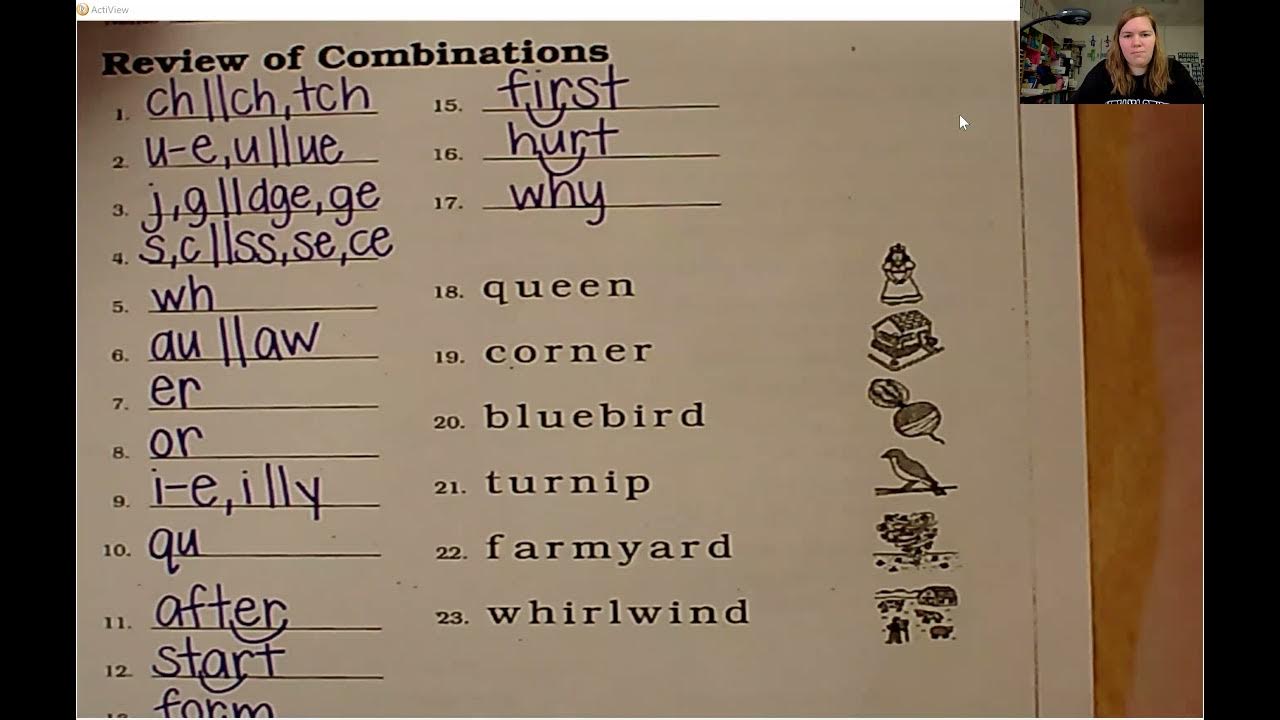 ActiView
Review of Combinations
1. ch||ch, tch
2. u-e, u||ue
3. j, g||dge, ge
4. s, c||ss, se, ce
5. wh
6. au||aw
7. er
8. or
9. i-e, i||y
10. qu
11. after
12. start
form
15. first
16. hurt
17. why
18. queen
19. corner
20. bluebird
21. turnip
22. farmyard
23. whirlwind